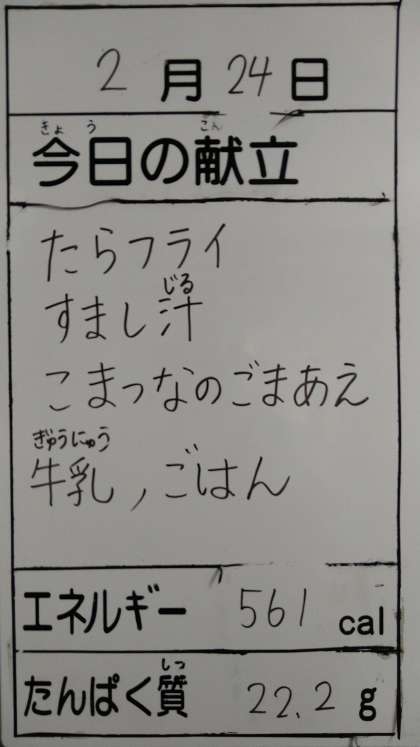 2月24日
きょう こん
今日の献立
たらフライ
じる
すまし汁
こまつなのごまあえ
ぎゅうにゅう
牛乳、ごはん
エネルギー 561 cal
しつ
たんぱく質 22.2 g